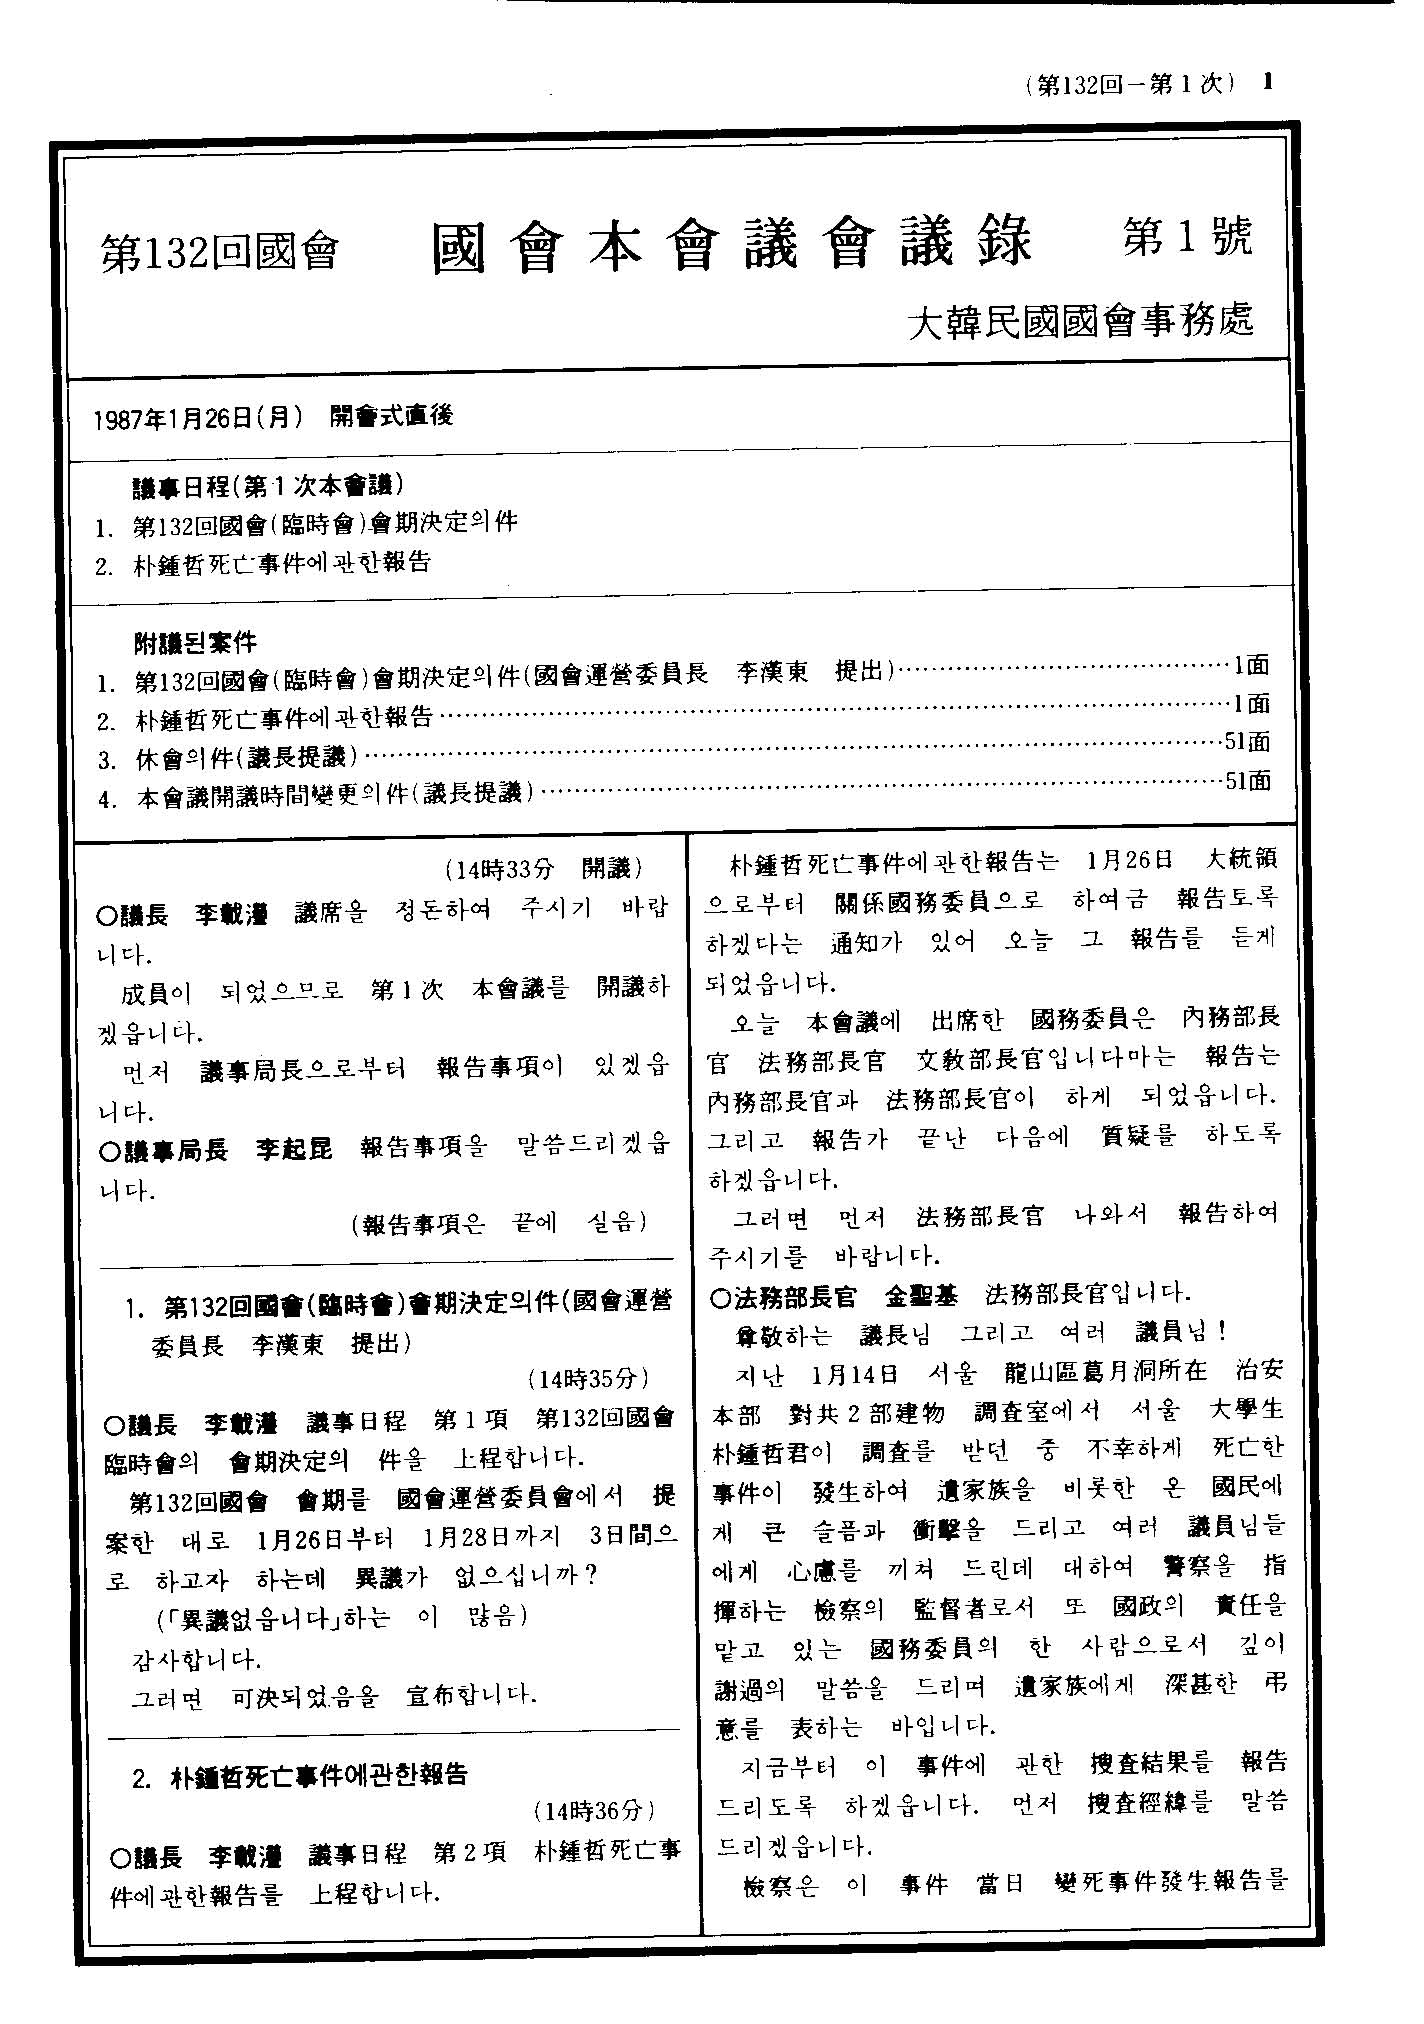 (第132回－第1次) 1
第132回國會 國會本會議會議錄 第1號
大韓民國國會事務處
1987年1月26日(月) 開會式直後
議事日程(第1次本會議)
1. 第132回國會(臨時會)會期決定의件
2. 朴鍾哲死亡事件에관한報告
附議된案件
1. 第132回國會(臨時會)會期決定의件(國會運營委員長 李漢東 提出)……………………………………1面
2. 朴鍾哲死亡事件에관한報告……………………………………1面
3. 休會의件(議長提議)……………………………………51面
4. 本會議開議時間變更의件(議長提議)……………………………………51面
(14時33分 開議)
○議長 李載灐 議席을 정돈하여 주시기 바랍
니다.
成員이 되었으므로 第1次 本會議를 開議하
겠읍니다.
먼저 議事局長으로부터 報告事項이 있겠읍
니다.
○議事局長 李起昆 報告事項을 말씀드리겠읍
니다.
(報告事項은 끝에 실음)
1. 第132回國會(臨時會)會期決定의件(國會運營
委員長 李漢東 提出)
(14時35分)
○議長 李載灐 議事日程 第1項 第132回國會
臨時會의 會期決定의 件을 上程합니다.
第132回國會 會期를 國會運營委員會에서 提
案한 대로 1月26日부터 1月28日까지 3日間으
로 하고자 하는데 異議가 없으십니까?
(「異議없읍니다」하는 이 많음)
감사합니다.
그러면 可決되었음을 宣布합니다.
2. 朴鍾哲死亡事件에관한報告
(14時36分)
○議長 李載灐 議事日程 第2項 朴鍾哲死亡事
件에관한報告를 上程합니다.
朴鍾哲死亡事件에관한報告는 1月26日 大統領
으로부터 關係國務委員으로 하여금 報告토록
하겠다는 通知가 있어 오늘 그 報告를 듣게
되었읍니다.
오늘 本會議에 出席한 國務委員은 內務部長
官 法務部長官 文敎部長官입니다마는 報告는
內務部長官과 法務部長官이 하게 되었읍니다.
그리고 報告가 끝난 다음에 質疑를 하도록
하겠읍니다.
그러면 먼저 法務部長官 나와서 報告하여
주시기를 바랍니다.
○法務部長官 金聖基 法務部長官입니다.
尊敬하는 議長님 그리고 여러 議員님!
지난 1月14日 서울 龍山區葛月洞所在 治安
本部 對共2部建物 調査室에서 서울 大學生
朴鍾哲君이 調査를 받던 중 不幸하게 死亡한
事件이 發生하여 遺家族을 비롯한 온 國民에
게 큰 슬픔과 衝擊을 드리고 여러 議員님들
에게 心慮를 끼쳐 드린데 대하여 警察을 指
揮하는 檢察의 監督者로서 또 國政의 責任을
맡고 있는 國務委員의 한 사람으로서 깊이
謝過의 말씀을 드리며 遺家族에게 深甚한 弔
意를 表하는 바입니다.
지금부터 이 事件에 관한 搜査結果를 報告
드리도록 하겠읍니다. 먼저 搜査經緯를 말씀
드리겠읍니다.
檢察은 이 事件 當日 變死事件發生報告를